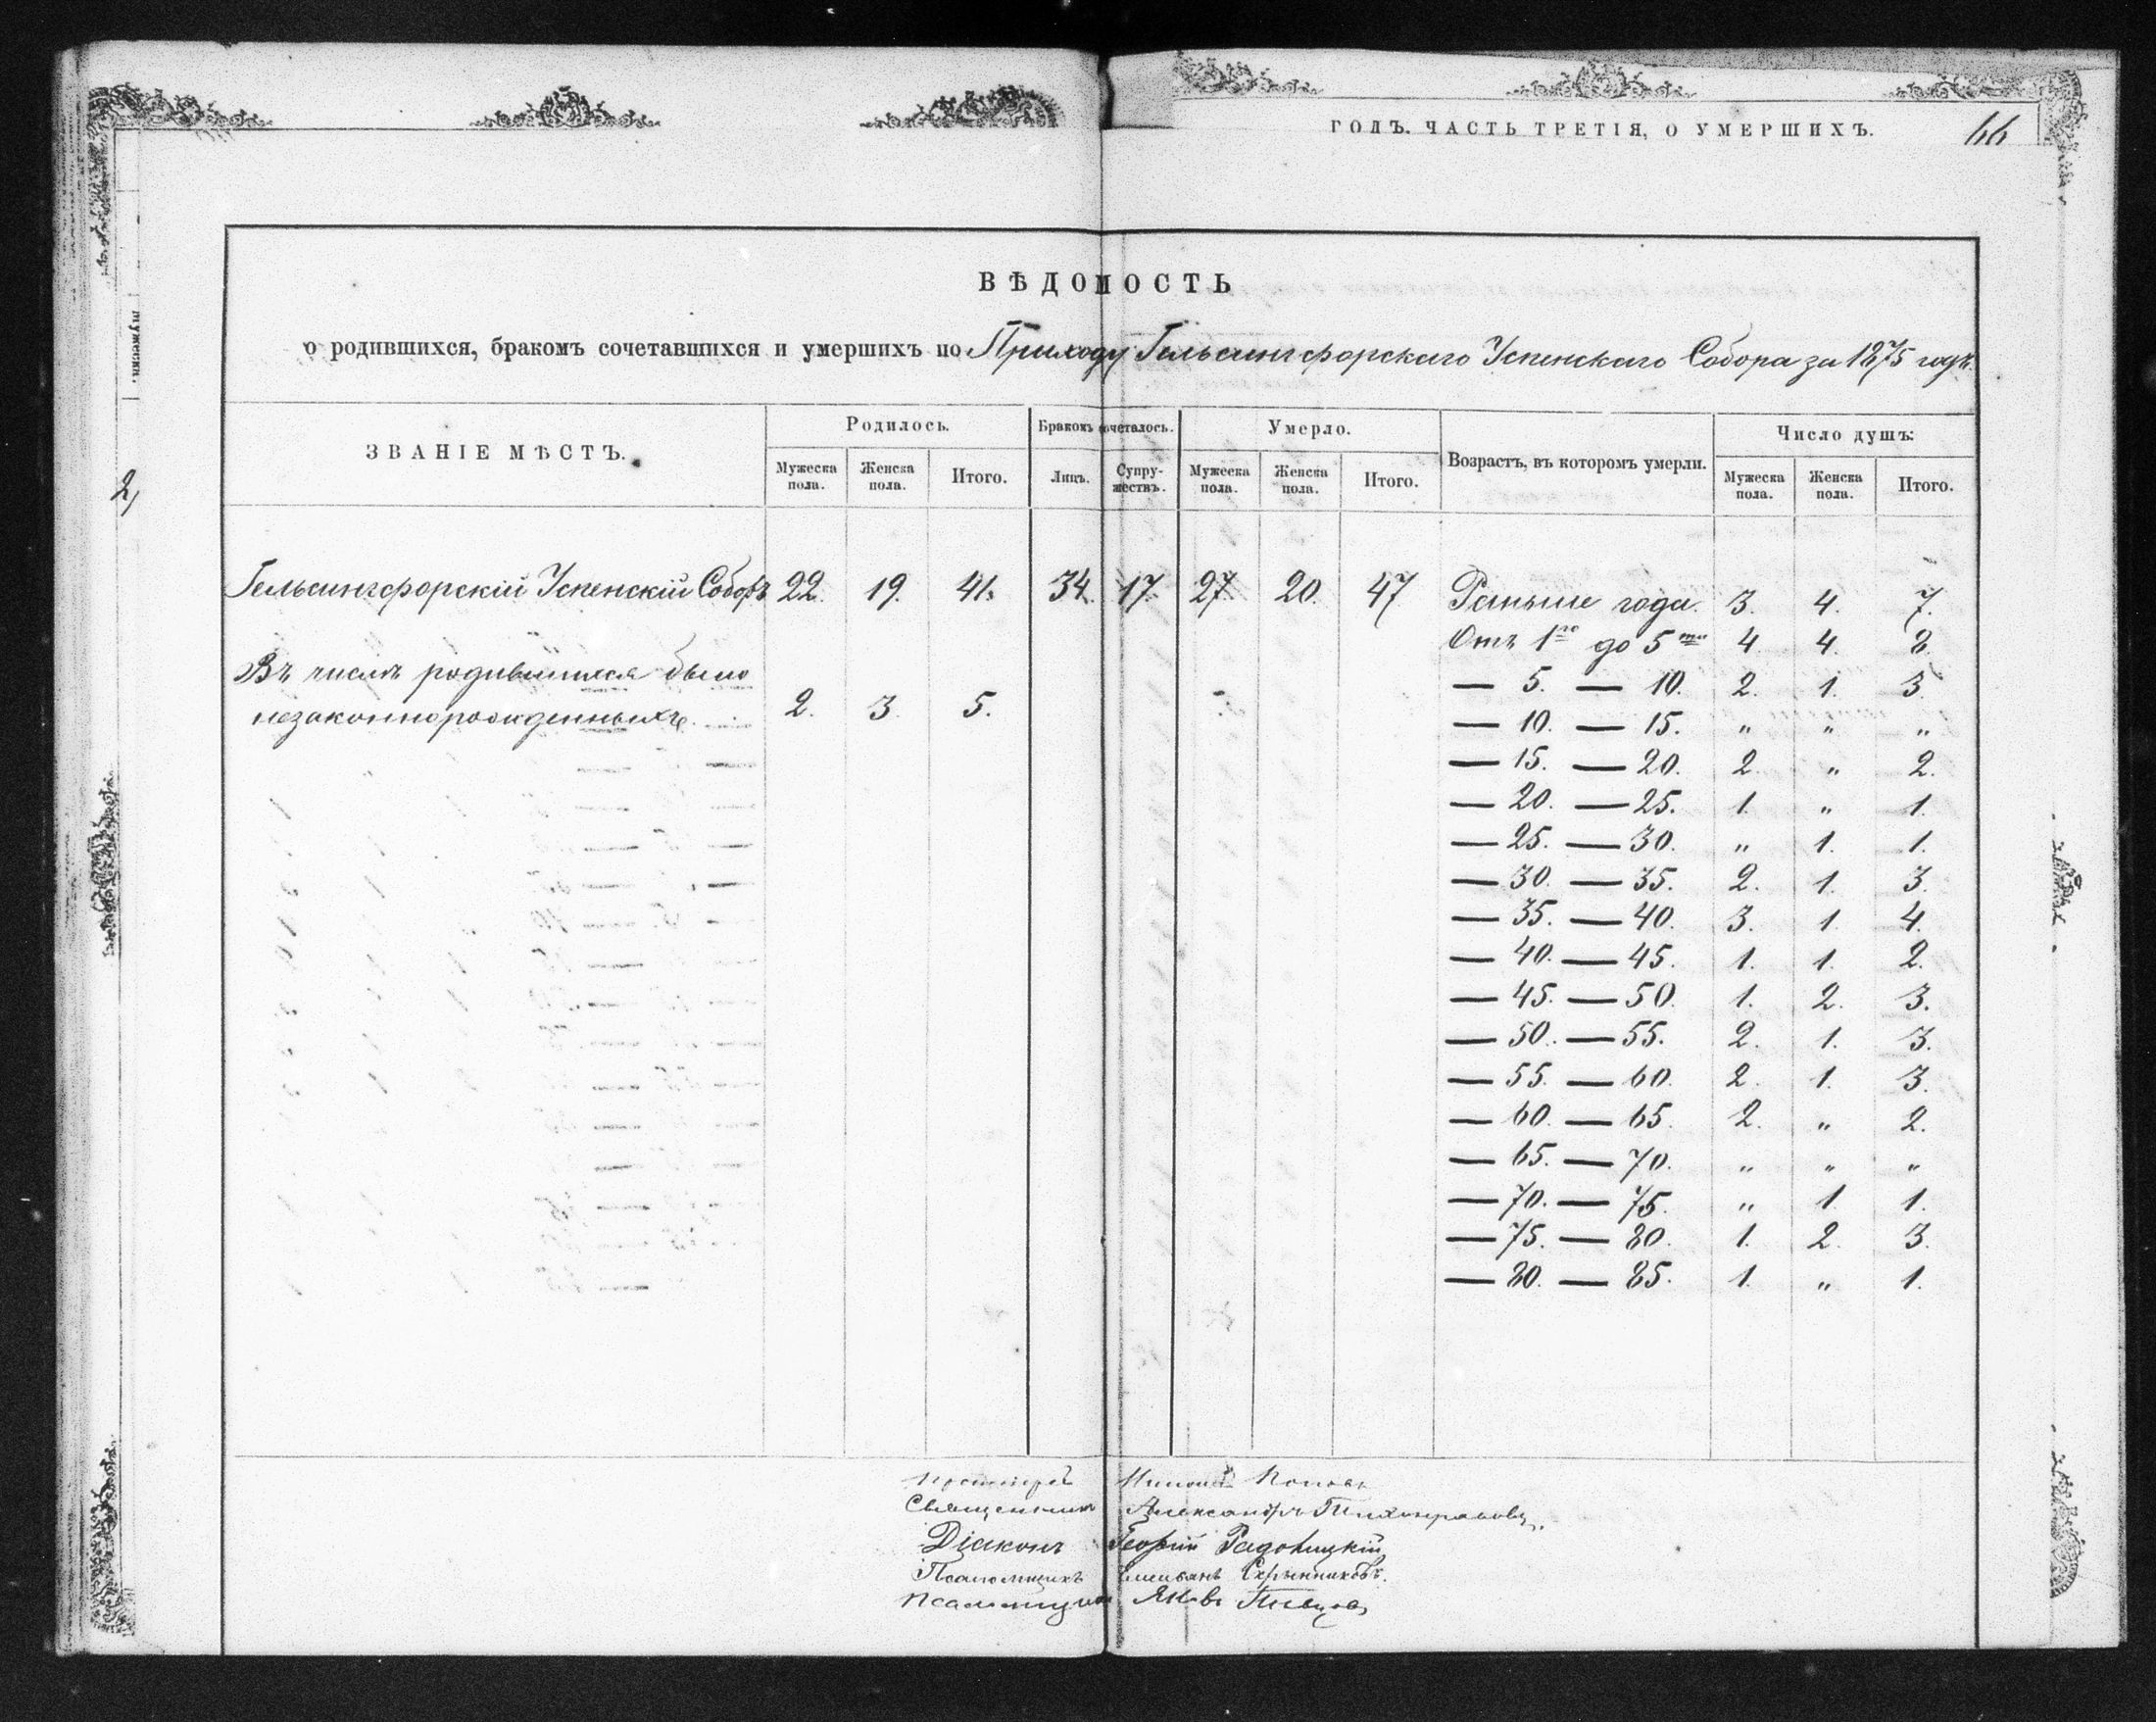 ГОДЪ. ЧАСТЬ ТРЕТІЯ, О УМЕРШИХЪ. 66
мужеска.
2,
ВѢДОМОСТЬ
о родившихся, бракомъ сочетавшихся и умершихъ по Приходу Гельсингфорскаго Успенскаго Собора за 1875 годъ.
ЗВАНІЕ МѢСТЪ. Родилось. Бракомъ сочеталось. Умерло. Возрастъ, въ которомъ умерли. Число душъ:
Мужеска пола. Женска пола. Итого. Лицъ. Супружествъ. Мужеска пола. Женска пола. Итого. Мужеска пола. Женска пола. Итого.
Гельсингфорскій Успенскій Соборъ 22. 19. 41. 34. 17. 27. 20. 47 Раньше года. 3. 4. 7.
Отъ 1го до 5ти 4 4. 8.
Въ числѣ родившихся было
незаконнорожденныхъ. 2. 3. 5.
— 5. — 10. 2. 1. 3.
— 10. — 15. „ „ „
— 15. — 20. 2. „ 2.
— 20. — 25. 1. „ 1.
— 25. — 30. „ 1. 1.
— 30. — 35. 2. 1. 3.
— 35. — 40. 3. 1. 4.
— 40. — 45. 1. 1. 2.
— 45. — 50. 1. 2. 3.
— 50. — 55. 2. 1. 3.
— 55. — 60. 2. 1. 3.
— 60. — 65. 2. „ 2.
— 65. — 70. „ „ „
— 70. — 75. „ 1. 1.
— 75. — 80. 1. 2. 3.
— 80. — 85. 1. „ 1.
Протоіерей Николай Поповъ
Священникъ Александръ
Діаконъ Георгій Радолицкій
Псаломщикъ Емельянъ Скрынниковъ.
Псаломщикъ Яковъ Пѣвцовъ